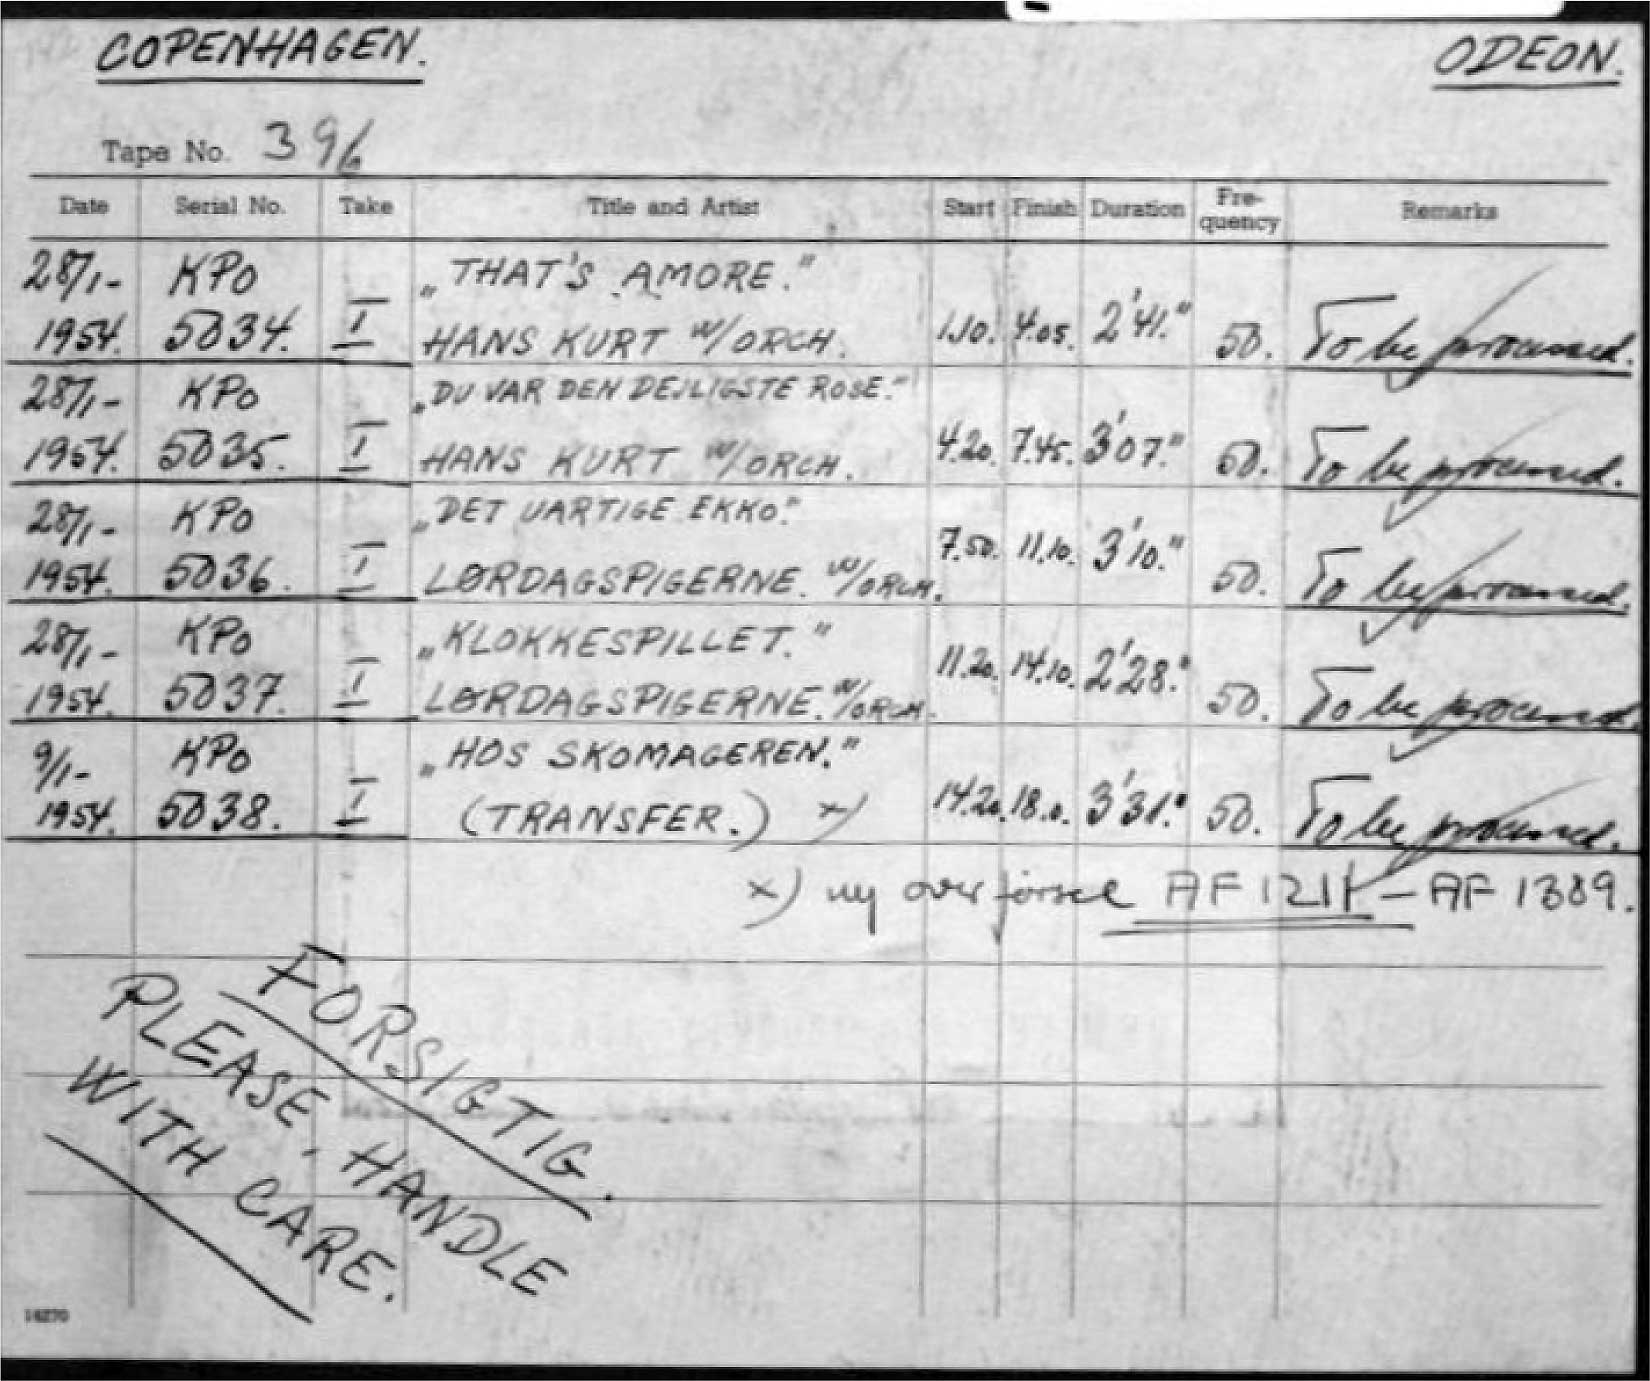 COPENHAGEN. ODEON.
Tape No. 396
Date Serial No. Take Title and Artist Start Finish Duration Fre- quency Remarks
28/1- KPO „THAT'S AMORE."
1954. 5034. I HANS KURT W/ORCH. 1.10. 4.05. 2'41." 50. To be processed.
28/1- KPO „DU VAR DEN DEJLIGSTE ROSE."
1954. 5035. I HANS KURT W/ORCH. 4.20. 7.45. 3'07." 50. To be processed.
28/1- KPO „DET UARTIGE EKKO."
1954. 5036. I LØRDAGSPIGERNE. W/ORCH. 7.50. 11.10. 3'10." 50. To be processed.
28/1- KPO „KLOKKESPILLET."
1954. 5037. I LØRDAGSPIGERNE. W/ORCH. 11.20. 14.10. 2'28." 50. To be processed.
9/1- KPO „HOS SKOMAGEREN."
1954. 5038. I (TRANSFER.) x) 14.20. 18.0. 3'31." 50. To be processed.
x) ny overførsel AF 1211 – AF 1309.
FORSIGTIG.
PLEASE, HANDLE
WITH CARE.
16270